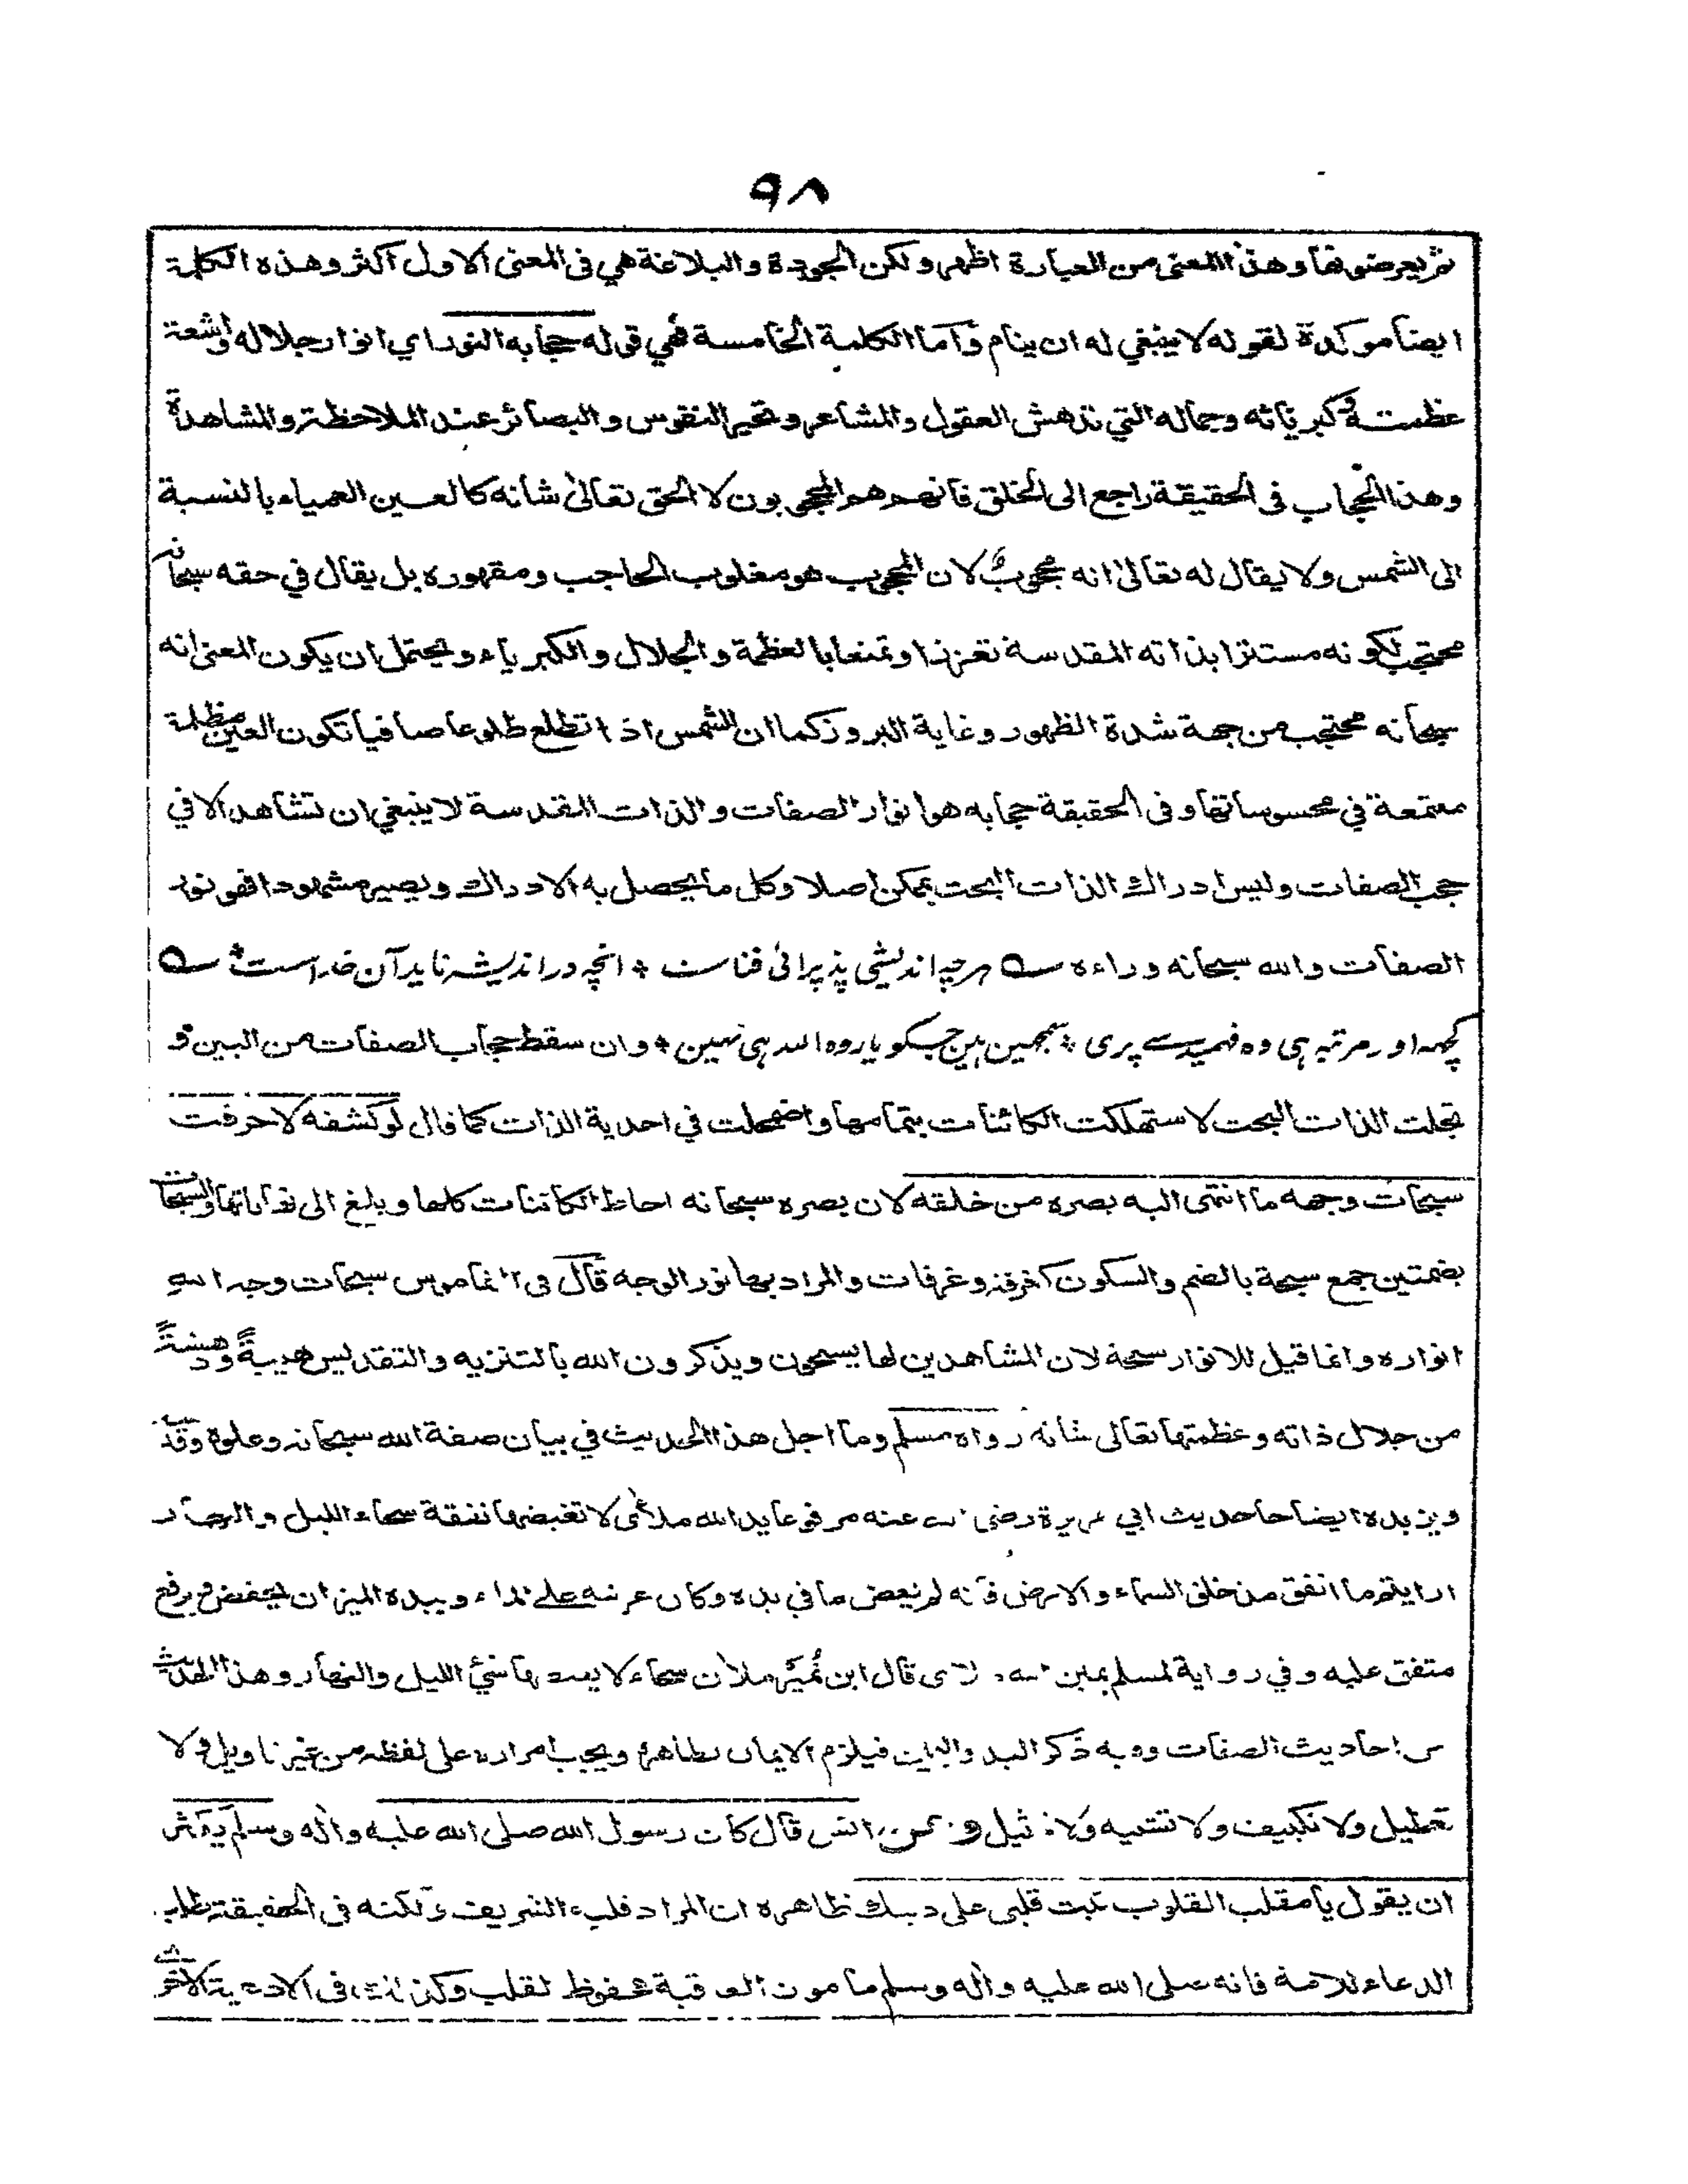 ٩٨
ثم يعرضونها وهذا المعنى من العبارة اظهر ولكن الجودة والبلاغة هي فى المعنى الاول اكثر وهذه الكلمة
ايضا موكدة لقوله لا ينبغي له ان ينام وأما الكلمة الخامسة فهي قوله حجابه النور اي انوار جلاله وأشعة
عظمته وكبريائه وجماله التي تدهش العقول والمشاعر وتحير النفوس والبصائر عند الملاحظة والمشاهدة
وهذا الحجاب فى الحقيقة راجع الى الخلق فانهم هم المحجوبون لا الحق تعالى شانه كالعين العمياء بالنسبة
الى الشمس ولا يقال له تعالى انه محجوب لان المحجوب هو مغلوب الحاجب ومقهوره بل يقال في حقه سبحانه
محتجب لكونه مستترا بذاته المقدسة تعززا وتمنعا بالعظمة والجلال والكبرياء ويحتمل ان يكون المعنى انه
سبحانه محتجب من جهة شدة الظهور وغاية البروز كما ان الشمس اذا تطلع طلوعا صافيا تكون العين مظلمة
معتمعة في محسوساتها وفى الحقيقة حجابه هو انوار الصفات والذات المقدسة لا ينبغي ان تشاهد الا في
حجب الصفات وليس ادراك الذات البحت بممكن اصلا وكل ما يحصل به الادراك ويصير مشهودا فهو نور
الصفات والله سبحانه وراءه ؎ هرچه اندیشی پذیرائی فناست * انچه در اندیشه ناید آن خداست * ؎
کچهه اور مرتبه هی وه فهمید سے پری * سمجهین هین جسکو یارو وه الله هی نهین * وان سقط حجاب الصفات من البين و
تجلت الذات البحت لاستهلكت الكائنات بتمامها واضمحلت في احدية الذات كما قال لو كشفه لاحرقت
سبحات وجهه ما انتهى اليه بصره من خلقه لان بصره سبحانه احاط الكائنات كلها ويبلغ الى نهاياتها والسبحات
بضمتين جمع سبحة بالضم والسكون كغرفة وغرفات والمراد بها نور الوجه قال فى القاموس سبحات وجه الله
انواره وانما قيل للانوار سبحة لان المشاهدين لها يسبحون ويذكرون الله بالتنزيه والتقديس هيبة ودهشة
من جلال ذاته وعظمتها تعالى شانه رواه مسلم وما اجل هذا الحديث في بيان صفة الله سبحانه وعلوه وقد
ويزيده ايضاحا حديث ابي هريرة رضى الله عنه مرفوعا يد الله ملأى لا تغيضها نفقة سحاء الليل والنهار
ارايتم ما انفق منذ خلق السماء والارض فانه لم يغض ما في يده وكان عرشه على الماء وبيده الميزان يخفض ويرفع
متفق عليه وفي رواية لمسلم يمين الله ملأى قال ابن نُمَيْر ملآن سحاء لا يغيضها شئ الليل والنهار وهذا الحديث
من احاديث الصفات وفيه ذكر اليد واليمين فيلزم الايمان بظاهره ويجب امراره على لفظه من غير تاويل ولا
تعطيل ولا تكييف ولا تشبيه ولا تمثيل وعن انس قال كان رسول الله صلى الله عليه وأله وسلم يكثر
ان يقول يا مقلب القلوب ثبت قلبى على دينك ظاهره ان المراد قلبه الشريف ولكنه فى الحقيقة طلب
الدعاء للامة فانه صلى الله عليه وأله وسلم مامون العاقبة محفوظ القلب وكذلك فى الادعية الاخر